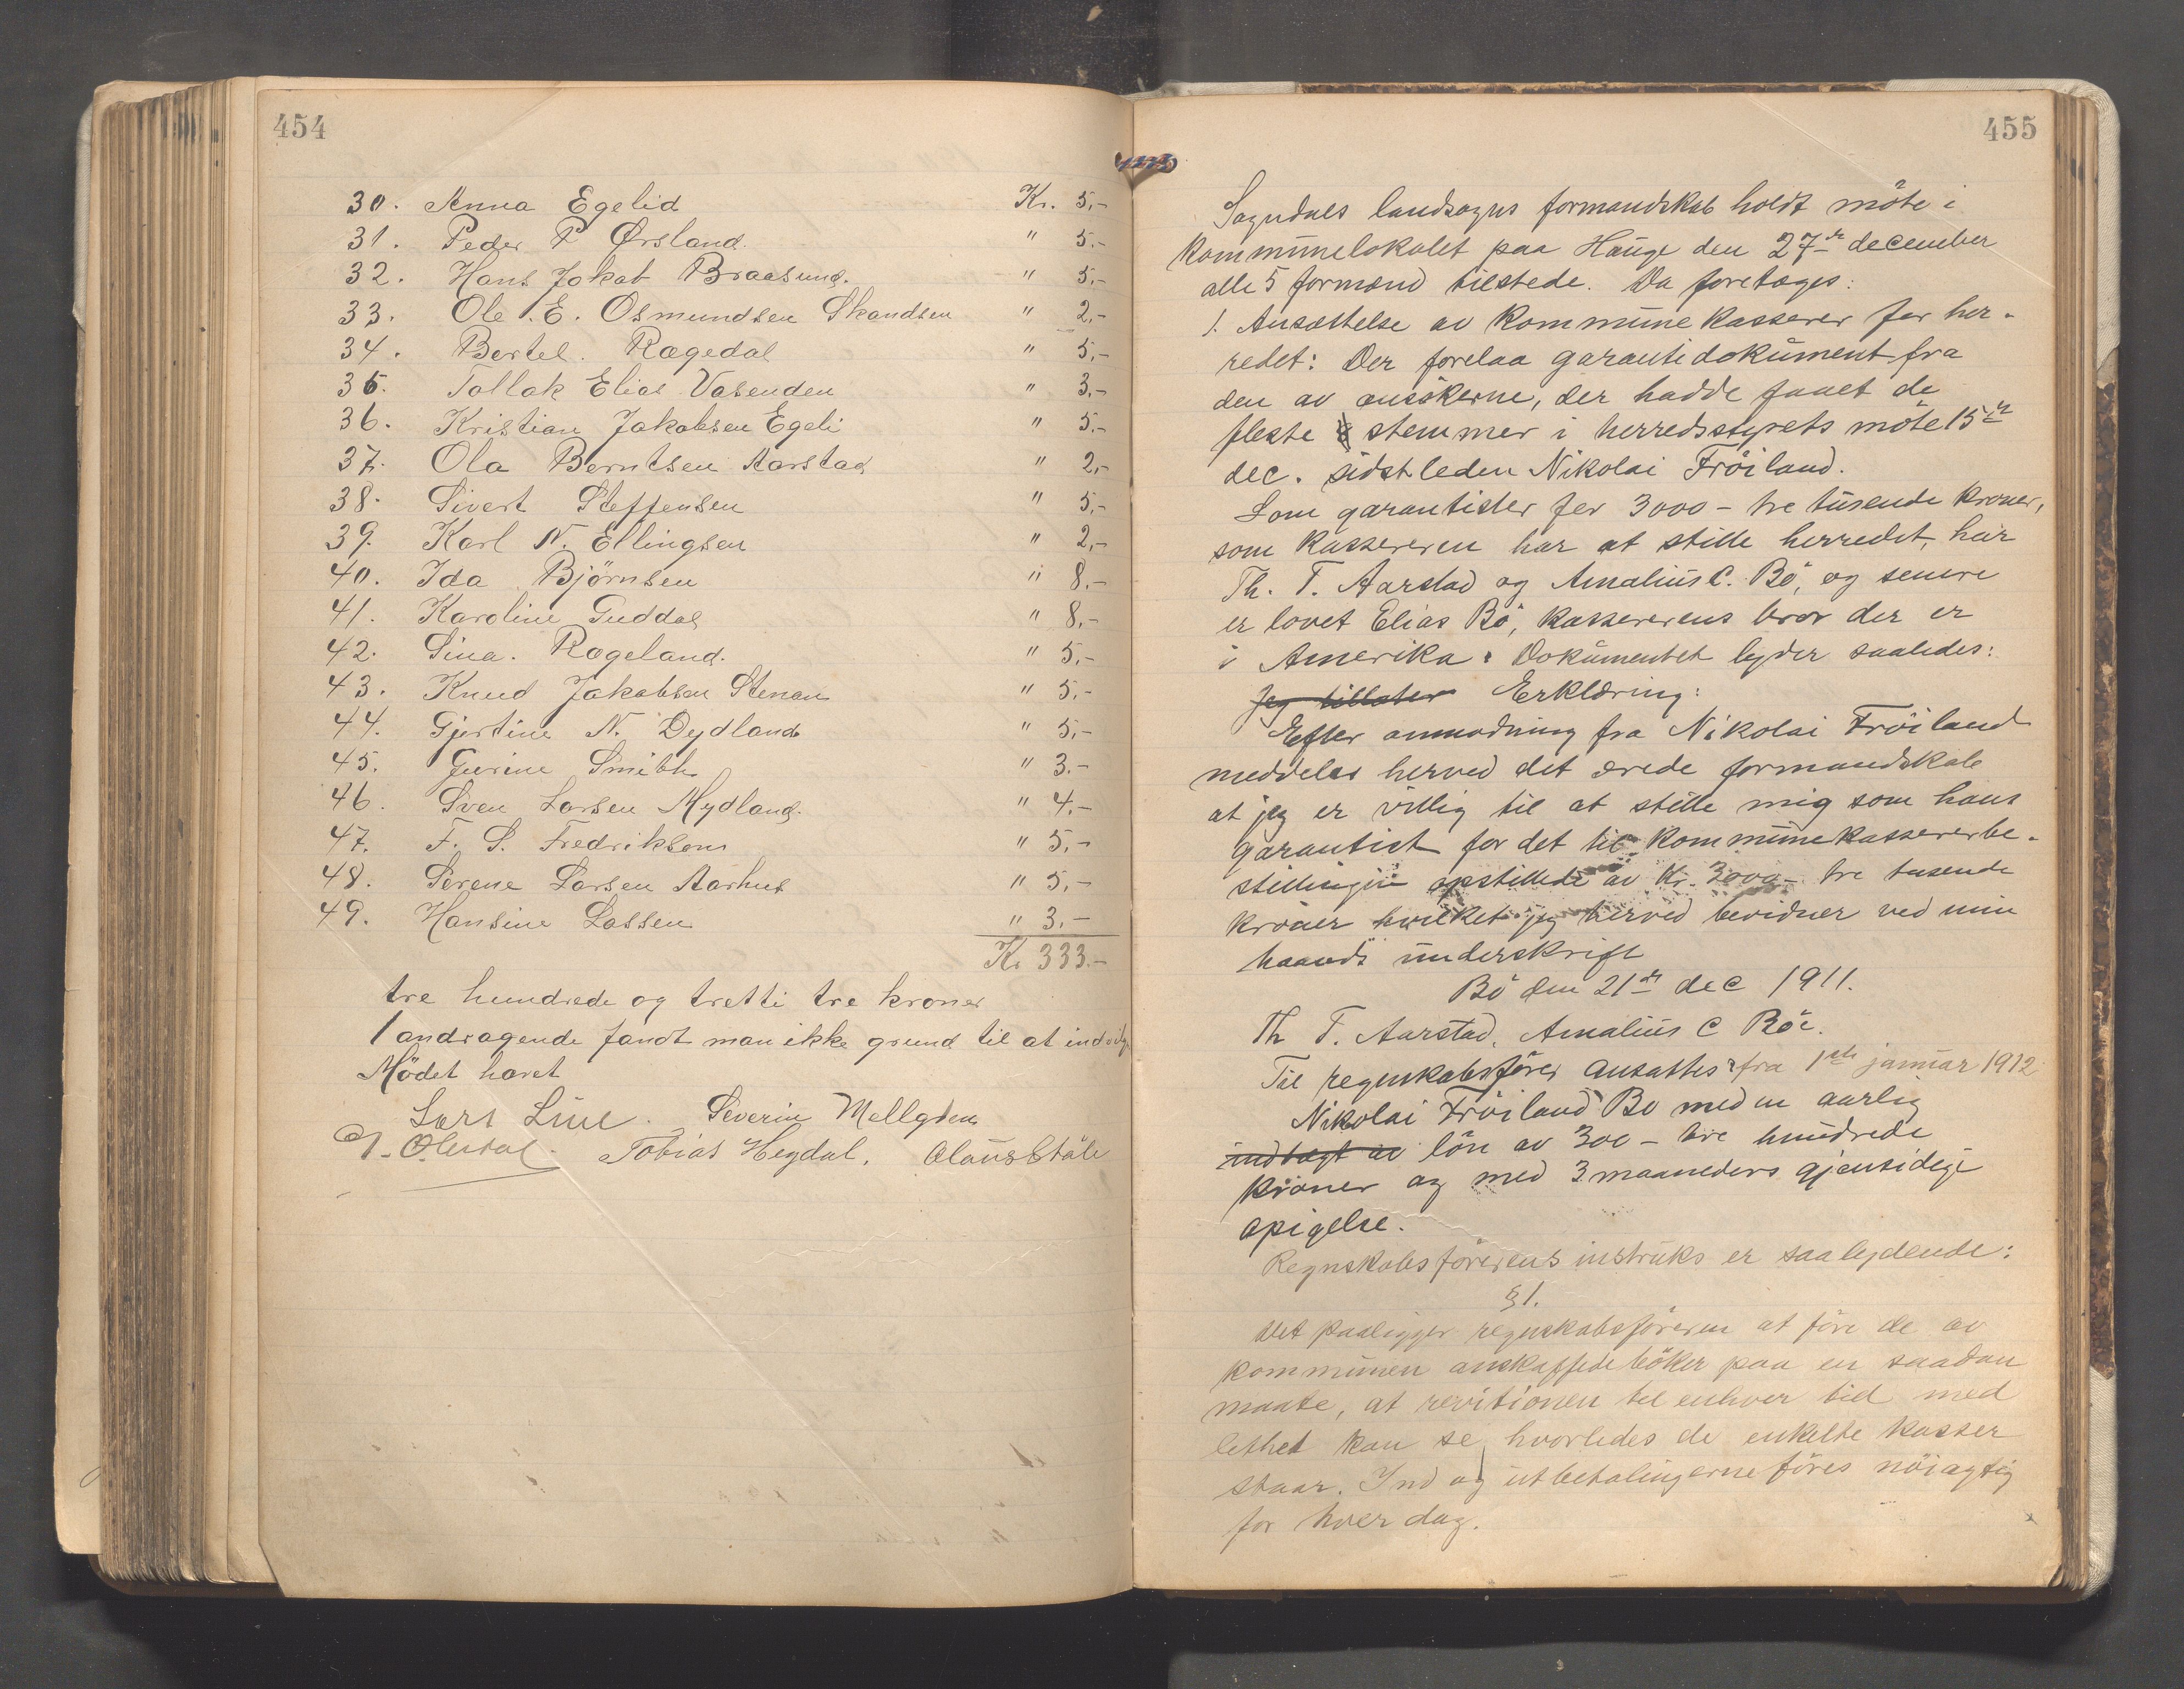 454
30. Anna Egelid Kr. 5,-
31. Peder P Ørsland. " 5.-
32. Hans Jokab Braasund. " 5,-
33. Ole E. Osmundsen Skandsen " 2,-
34. Bertel. Rægedal " 5,-
35. Tollak Elias Vasenden " 3,-
36. Kristian Jakobsen Egeli " 5.-
37. Ola Berntsen Aarstad " 2,-
38. Sivert Steffensen " 5,-
39. Karl N. Ellingsen " 2,-
40. Ida Bjørnsen " 8,-
41. Karoline Guddal " 8,-
42. Sina. Rægeland. " 5,-
43. Knud Jakobsen Stenan " 5.-
44. Gjertine N. Dydland " 5,-
45. Gurine Smith " 3.-
46. Sven Larsen Mydland. " 4,-
47. F. S. Fredriksen " 5,-
48. Serene Larsen Aarhus " 5,-
49. Hansine Lassen " 3,-
Kr 333.-
tre hundrede og tretti tre kroner
1 andragende fandt man ikke grund til at indvilge
Mödet hævet
Lars Liue. Severin Mellgden
Tobias Hegdal. Olaus Ståle
455
Sogndals landsogns formandskab holdt möte i
kommunelokalet paa Hauge den 27de december
alle 5 formænd tilstede. Da foretages:
1. Ansættelse av kommunekasserer for her-
redet: Der forelaa garantidokument fra
den av ansökerne, der hadde faaet de
fleste stemmer i herredsstyrets möte 15de
dec. sidstleden Nikolai Fröiland.
Som garantister for 3000 - tre tusende kroner,
som kassereren har at stille herredet, har
Th. T. Aarstad og Amalius C. Bö, og senere
er lovet Elias Bö, kassererens bror der er
i Amerika. Dokumentet lyder saaledes:
Jeg tillater Erklæring:
Efter anmodning fra Nikolai Fröiland
meddeles herved det ærede formandskab
at jeg er villig til at stille mig som hans
garantist for det til kommunekassererbe-
stillingen opstillede av Kr. 3000 - tre tusende
kroner hvilket jeg herved bevidner ved min
haands underskrift
Bö den 21de dec 1911.
Th T. Aarstad. Amalius C Böe.
Til regnskabsförer ansattes fra 1ste januar 1912
Nikolai Fröiland Bö med en aarlig
indtægt av lön av 300 - tre hundrede
kroner og med 3 maaneders gjensidige
opsigelse.
Regnskabsförerens instruks er saalydende:
§1.
Det paaligger regnskabsföreren at före de av
kommunen anskaffede böker paa en saadan
maate, at revitionen til enhver tid med
lethet kan se, hvorledes de enkelte kasser
staar. Ind og utbetalingerne föres nöiagtig
for hver dag.